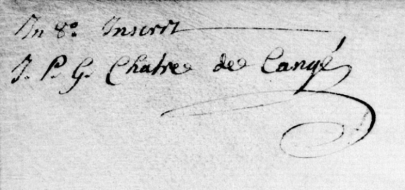 In 8.° Inscrit
J. P. G. Chatre de Cangé